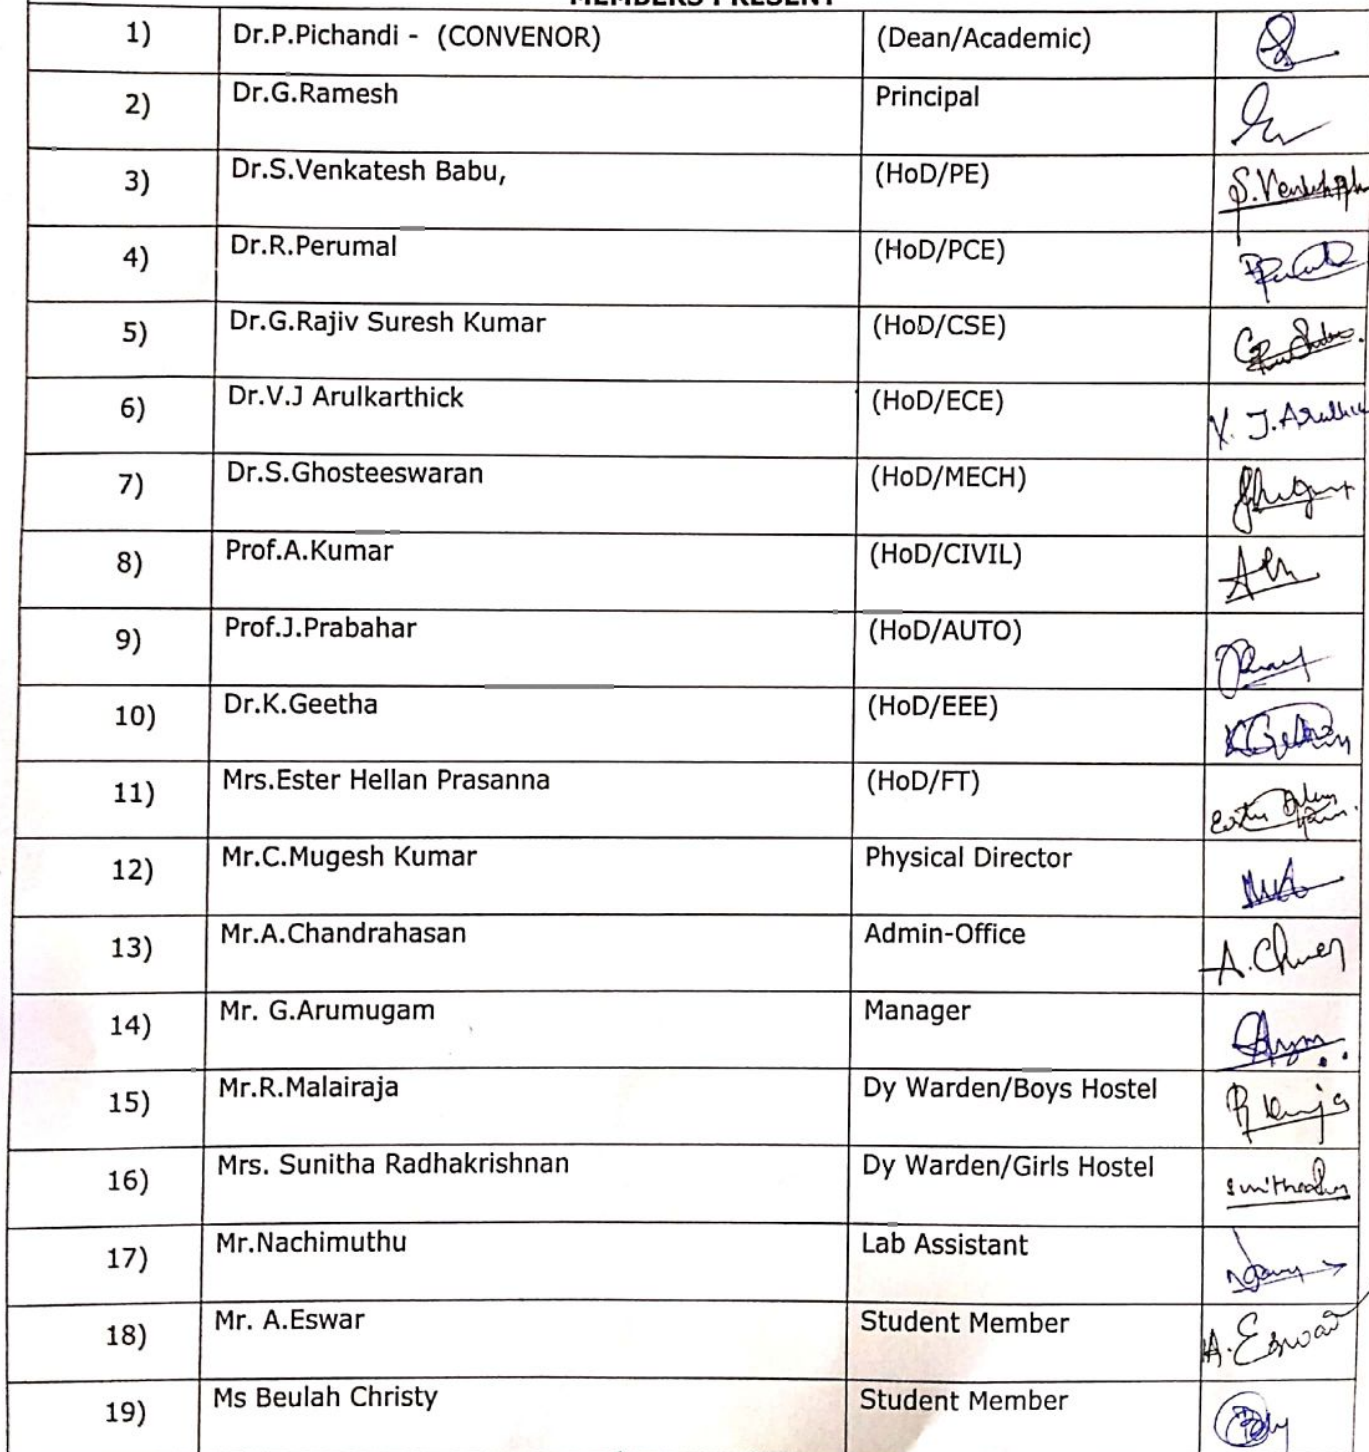 MEMBERS PRESENT
1) Dr.P.Pichandi - (CONVENOR) (Dean/Academic)
2) Dr.G.Ramesh Principal
3) Dr.S.Venkatesh Babu, (HoD/PE) S.Venkatesh
4) Dr.R.Perumal (HoD/PCE)
5) Dr.G.Rajiv Suresh Kumar (HoD/CSE)
6) Dr.V.J Arulkarthick (HoD/ECE) V. J. Arulka
7) Dr.S.Ghosteeswaran (HoD/MECH)
8) Prof.A.Kumar (HoD/CIVIL)
9) Prof.J.Prabahar (HoD/AUTO)
10) Dr.K.Geetha (HoD/EEE)
11) Mrs.Ester Hellan Prasanna (HoD/FT)
12) Mr.C.Mugesh Kumar Physical Director
13) Mr.A.Chandrahasan Admin-Office
14) Mr. G.Arumugam Manager
15) Mr.R.Malairaja Dy Warden/Boys Hostel
16) Mrs. Sunitha Radhakrishnan Dy Warden/Girls Hostel
17) Mr.Nachimuthu Lab Assistant
18) Mr. A.Eswar Student Member A. Eswar
19) Ms Beulah Christy Student Member